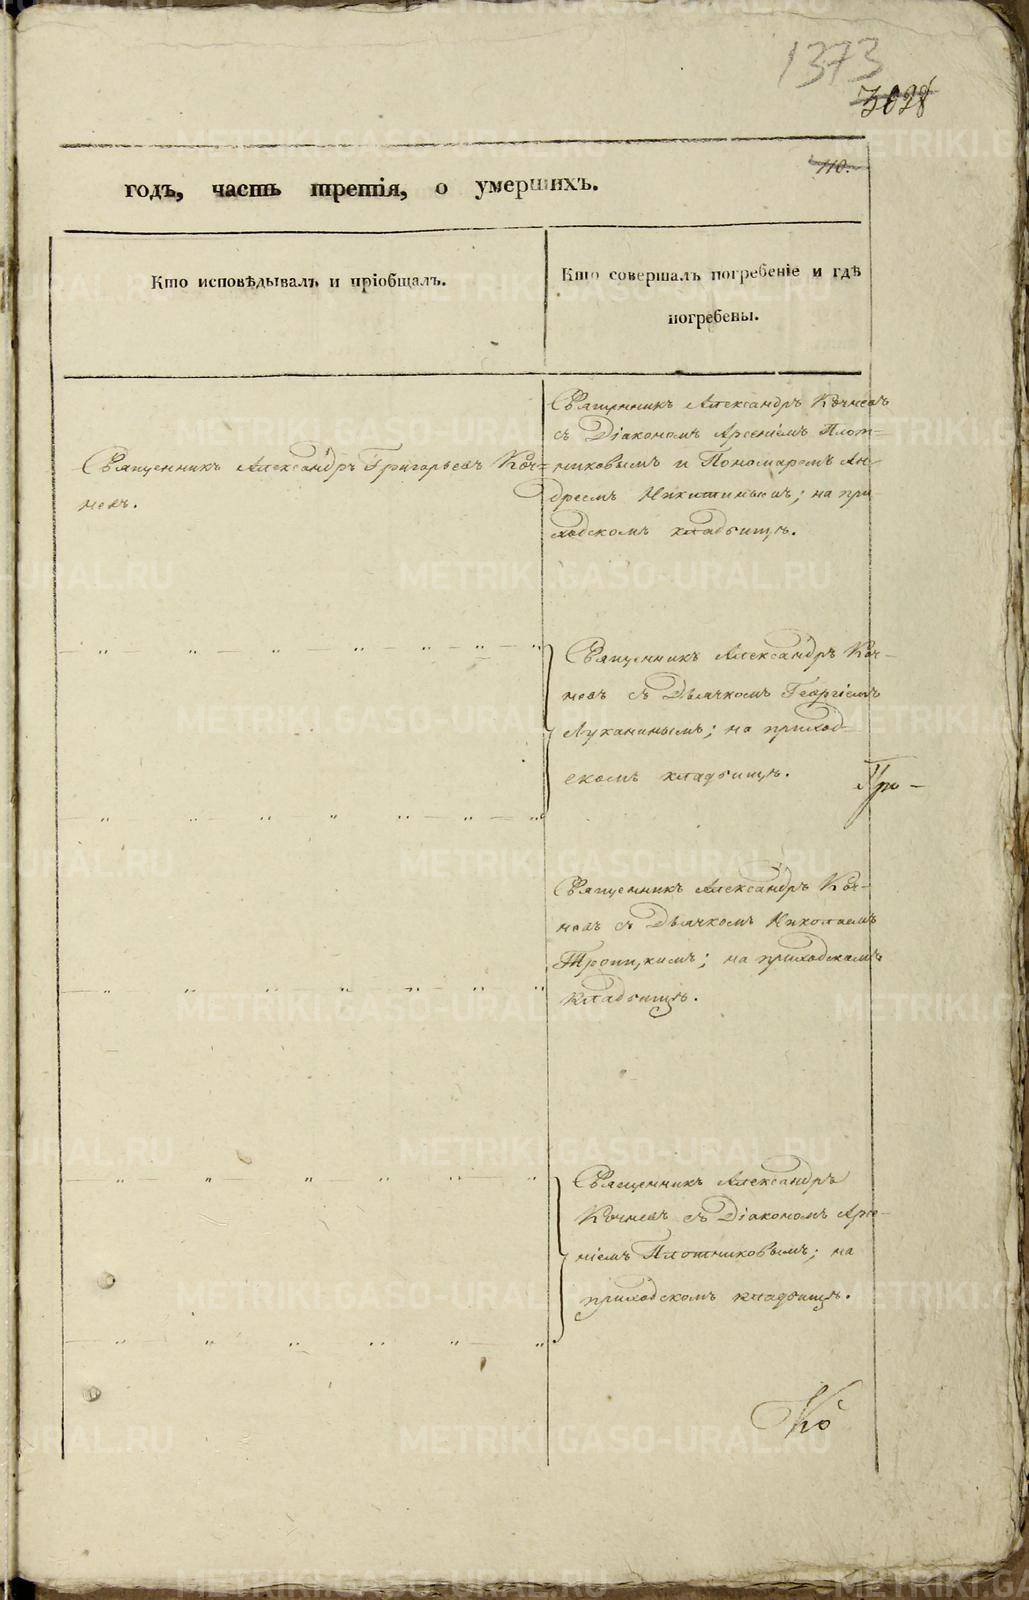 1373
3028
110.
годъ, часть третія, о умершихъ.
Кто исповѣдывалъ и пріобщалъ.
Кто совершалъ погребеніе и гдѣ
погребены.
Священникъ Александръ Григорьевъ Коч=
невъ.
Священникъ Александръ Кочневъ
съ Діакономъ Арсеніемъ Плот=
никовымъ и Пономаремъ Ан-
дреемъ Никитинымъ; на при
ходскомъ кладбищѣ.
Священникъ Александръ Коч-
невъ съ Дьячкомъ Георгіемъ
Луканинымъ; на приход-
скомъ кладбищѣ.
Гро-
Священникъ Александръ Коч-
невъ съ Дьячкомъ Николаемъ
Троицкимъ; на приходскомъ
кладбищѣ.
Священникъ Александръ
Кочневъ съ Діакономъ Арсе-
ніемъ Плотниковымъ; на
приходскомъ кладбищѣ.
Ко
METRIKI.GASO-URAL.RU